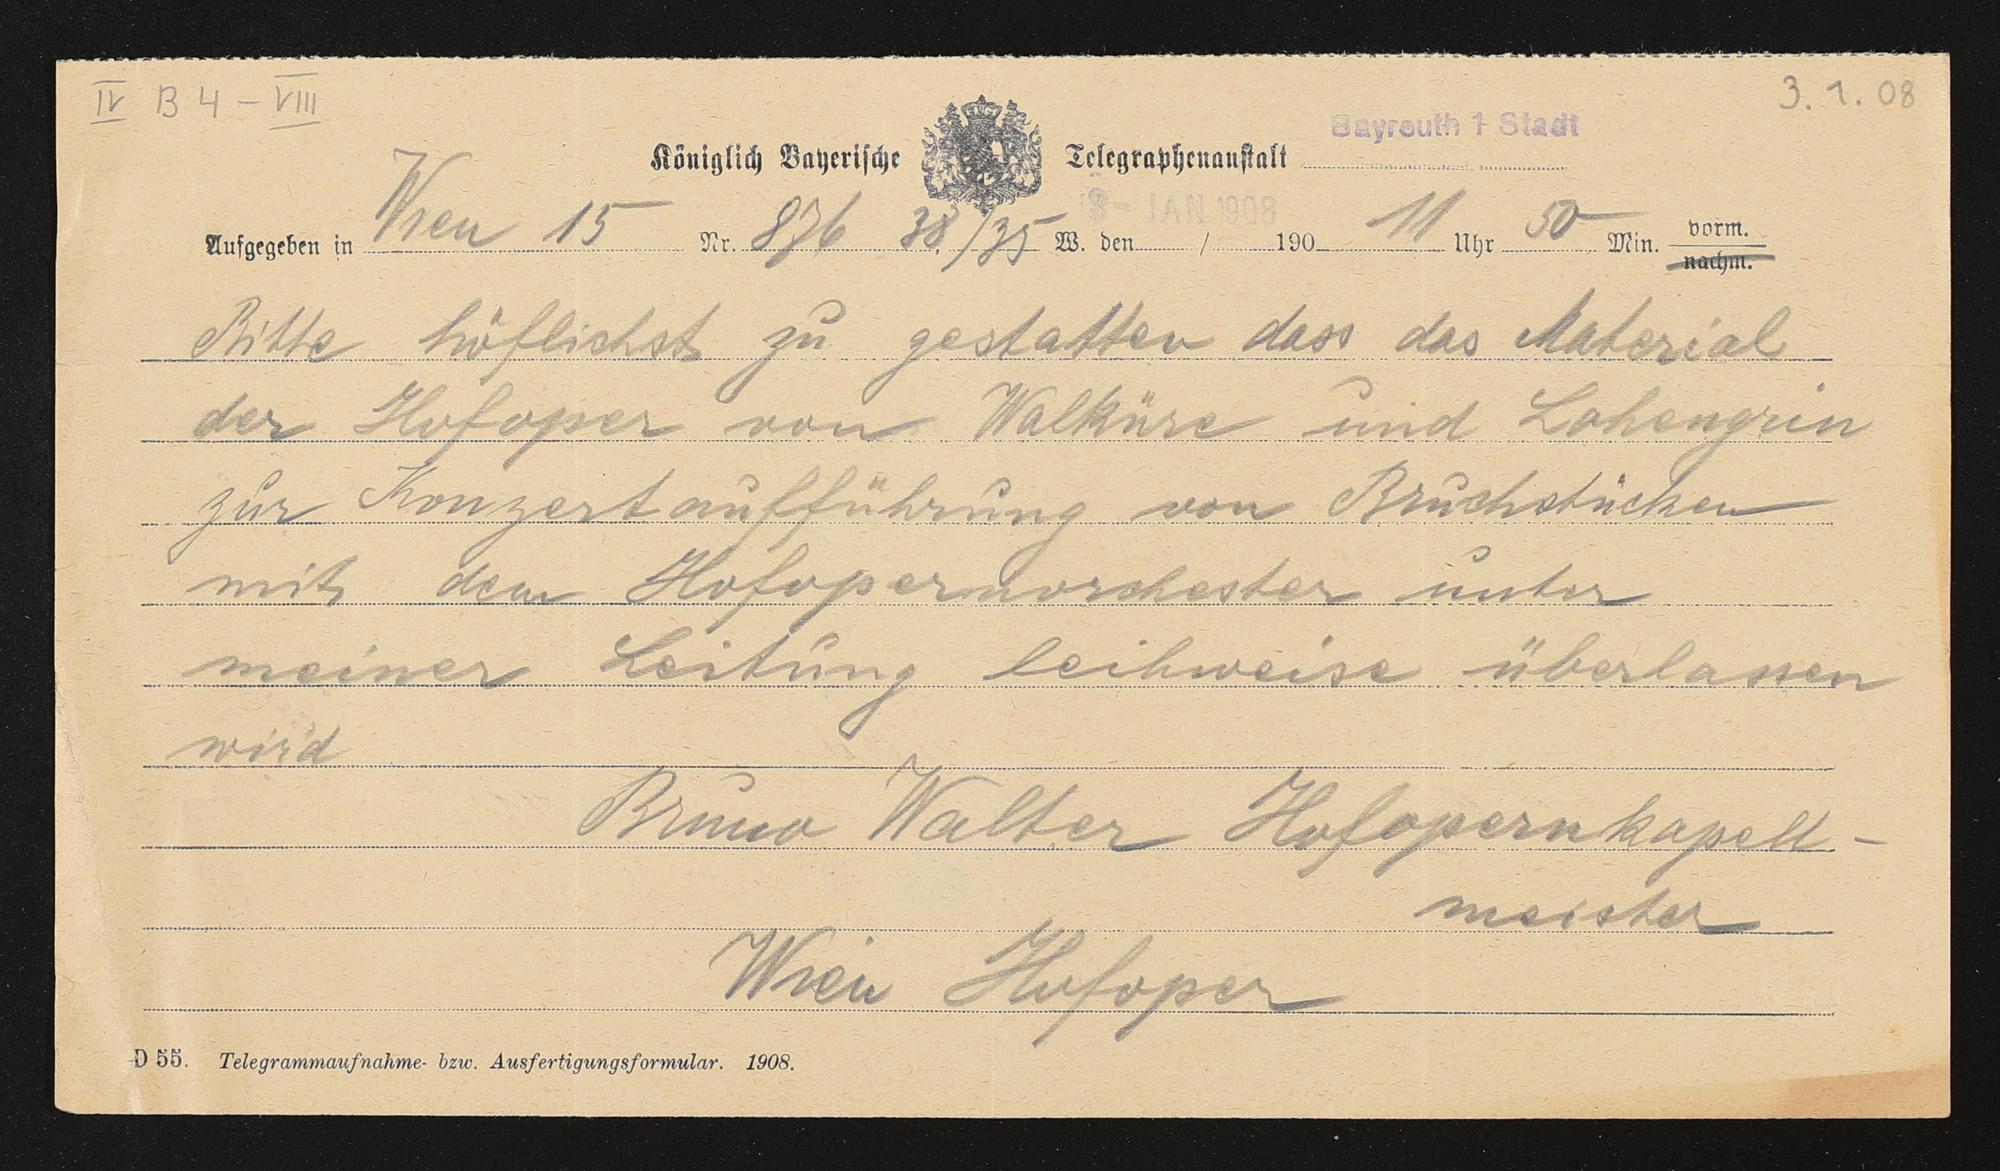 IV B 4 – VIII
3. 1. 08
Königlich Bayerische Telegraphenanstalt Bayreuth 1 Stadt
3 - JAN 1908
Aufgegeben in Wien 15 Nr. 876 38/35 W. den / 190 11 Uhr 50 Min. vorm.
nachm.
Bitte höflichst zu gestatten dass das Material
der Hofoper von Walküre und Lohengrin
zur Konzertaufführung von Bruchstücken
mit dem Hofopernorchester unter
meiner Leitung leihweise überlassen
wird
Bruno Walter Hofopernkapell-
meister
Wien Hofoper
D 55. Telegrammaufnahme- bzw. Ausfertigungsformular. 1908.